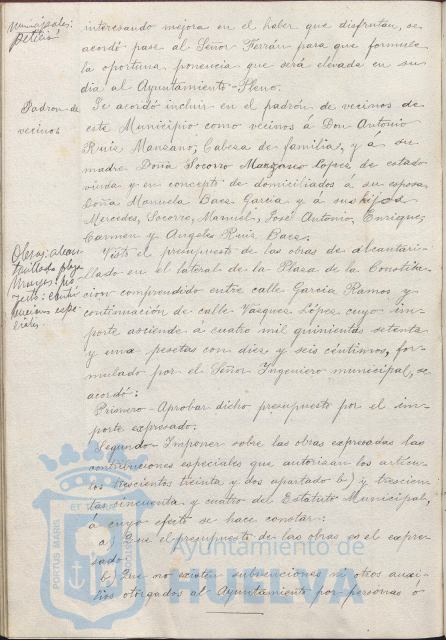 municipales:
petición
interesando mejora en el haber que disfrutan, se
acordó pase al Señor Terrán para que formule
la oportuna ponencia que será elevada en su
día al Ayuntamiento-Pleno.
Padron de
vecinos
Se acordó incluir en el padrón de vecinos de
este Municipio como vecinos á Don Antonio
Ruiz Manzano, Cabeza de familia, y a su
madre Doña Socorro Manzano Lopez de estado
viuda y en concepto de domiciliados á su esposa
Doña Manuela Baez Garcia y á sus hijos
Mercedes, Socorro, Manuel, José Antonio, Enrique,
Carmen y Angeles Ruiz Baez.
Obras: alcan-
tarillado plaza
Monjas: 
contri-
buciones espe-
ciales
Visto el presupuesto de las obras de alcantari-
llado en el lateral de la Plaza de la Constitu-
cion comprendido entre calle Garcia Ramos y
continuación de calle Vasquez López cuyo im-
porte asciende á cuatro mil quinientas setenta
y una pesetas con diez y seis céntimos, for-
mulado por el Señor Ingeniero municipal, se
acordó:
Primero- Aprobar dicho presupuesto por el im-
porte expresado.
Segundo- Imponer sobre las obras expresadas las
contribuciones especiales que autorizan los artícu-
los trescientos treinta y dos apartado b) y trescien-
tos cincuenta y cuatro del Estatuto Municipal,
á cuyo efecto se hace constar:
a) Que el presupuesto de las obras es el expre-
sado.
b) Que no existen subvenciones ni otros auxi-
lios otorgados al Ayuntamiento por personas o
PORTUS MARIS
ET
Ayuntamiento de
HUELVA